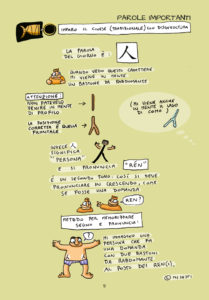 PAROLE IMPORTANTI
IMPARO IL CINESE (TRADIZIONALE) CON DISINVOLTURA
LA PAROLA
DEL GIORNO È:
人
QUANDO VEDO QUESTO CARATTERE
MI VIENE IN MENTE
UN BASTONE DA RABDOMANTE
ATTENZIONE:
NON POTEVO
VENIRE IN MENTE
DI PROFILO
LA POSIZIONE
CORRETTA È QUELLA
FRONTALE
(MI VIENE ANCHE
IN MENTE A LAGO
DI COMO)
INVECE 人
SIGNIFICA
"PERSONA"
E SI PRONUNCIA
"RÉN"
È UN SECONDO TONO: COSÌ SI DEVE
PRONUNCIARE IN CRESCENDO, COME
SE FOSSE UNA DOMANDA
REN?
METODO PER MEMORIZZARE
SEGNO E PRONUNCIA:
?
MI IMMAGINO UNA
PERSONA CHE FA
UNA DOMANDA
CON DUE BASTONI
DA RABDOMANTE
AL POSTO DEI REN(I).